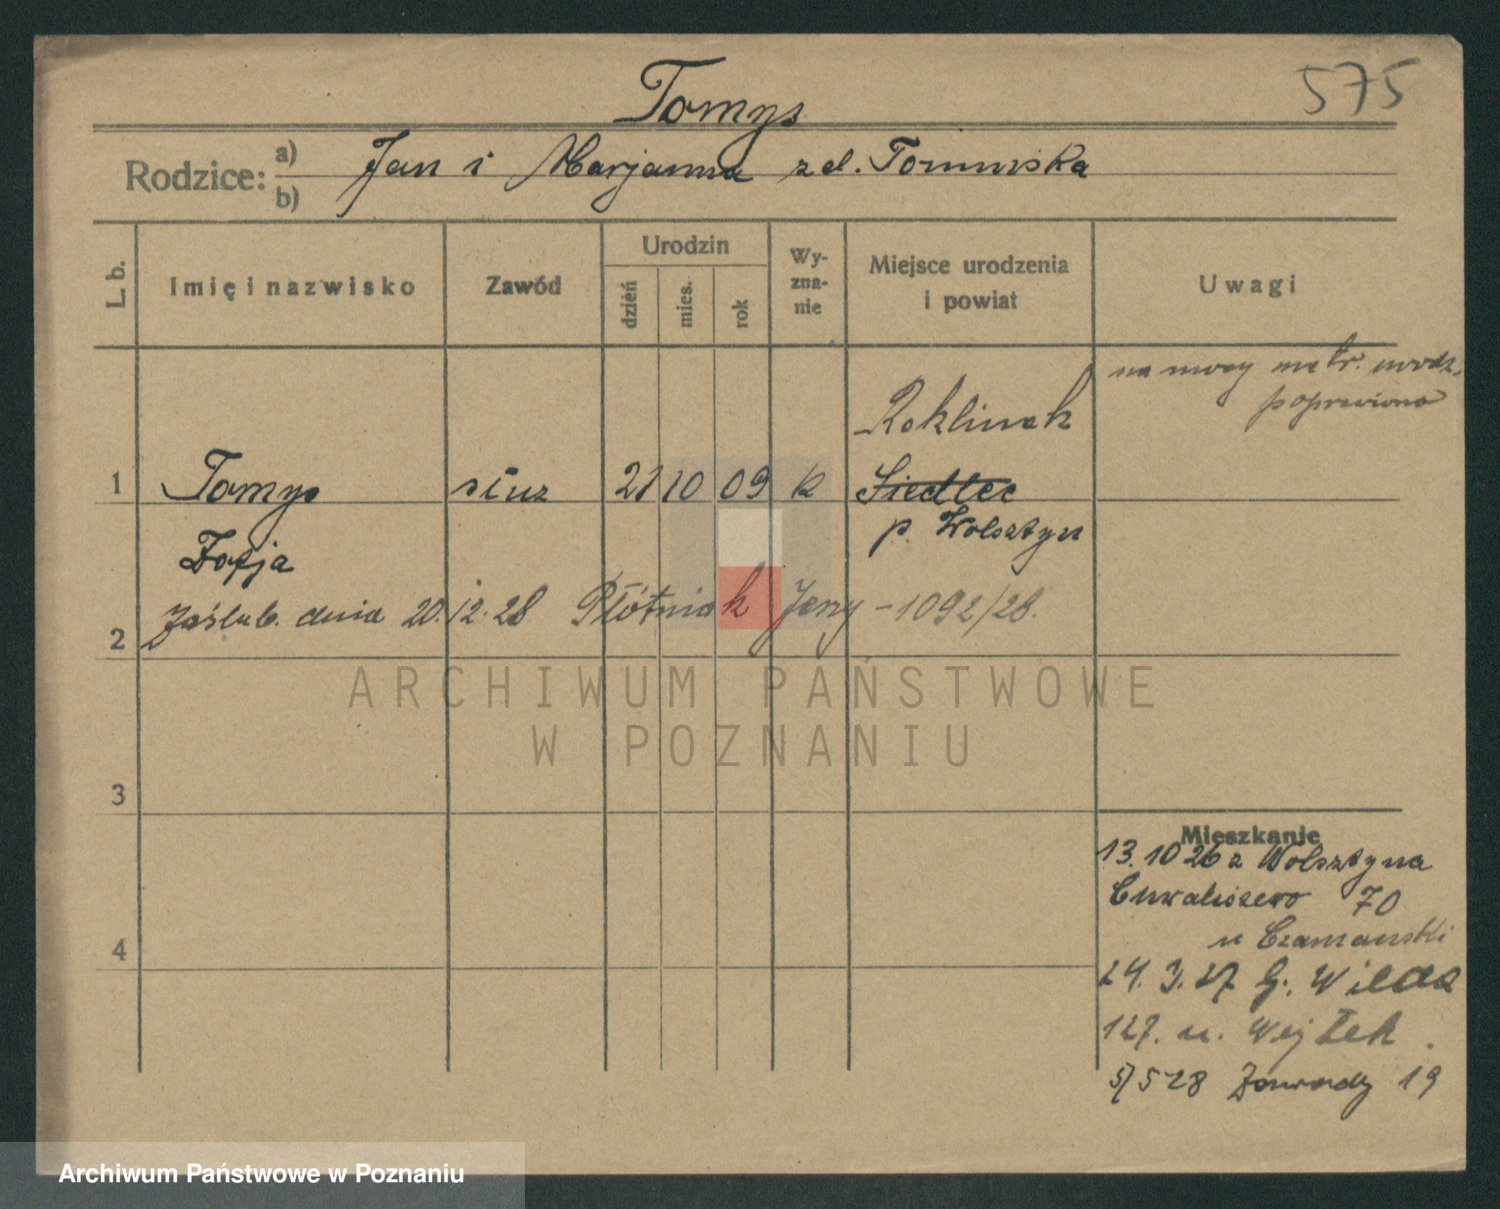 575
Tomys
Rodzice: a) b) Jan i Marjanna z d.
L. b. Imię i nazwisko Zawód Urodzin dzień mies. rok Wyznanie Miejsce urodzenia i powiat Uwagi
metr. urodz.
poprawiono
Reklinek
1 Tomys służ 21 10 09 k Siedlec
p. Wolsztyn
Zofja
2 Zaślub. dnia 20.12.28 Płótniak Jerzy - 1092/28.
ARCHIWUM PAŃSTWOWE
W POZNANIU
3
Mieszkanie
13.10 26 z Wolsztyna
Chwaliszewo 70
u Czamański
4
24.3.27 G. Wilda
127. u. Wojtek.
5/5 28 Zawady 19
Archiwum Państwowe w Poznaniu